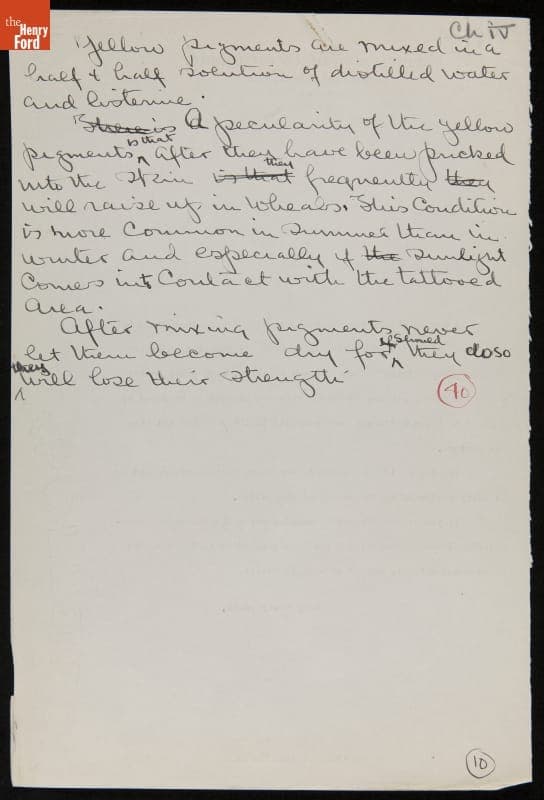 the
Henry
Ford
Ch IV
Yellow pigments are mixed in a
half & half solution of distilled water
and listerine.
There is A peculiarity of the yellow
pigments is that after they have been pricked
into the skin is that they frequently they
will raise up in wheals. This condition
is more common in summer than in
winter and especially if the sunlight
comes into contact with the tattooed
area.
After mixing pigments never
let them become dry for if they do so
they will lose their strength
40
10